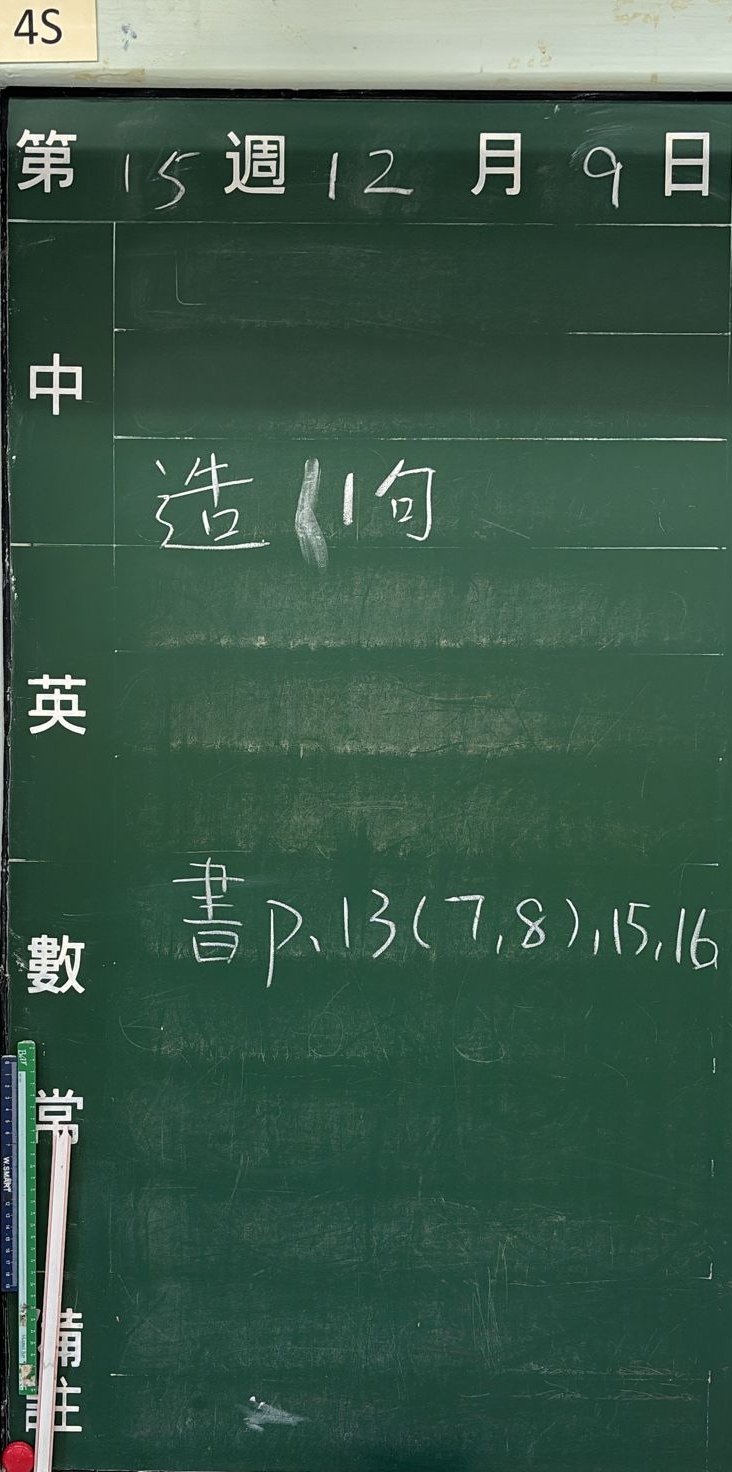 4S
第 15 週 12 月 9 日
中
造 1句
英
書 p.13(7,8),15,16
數
常
備註